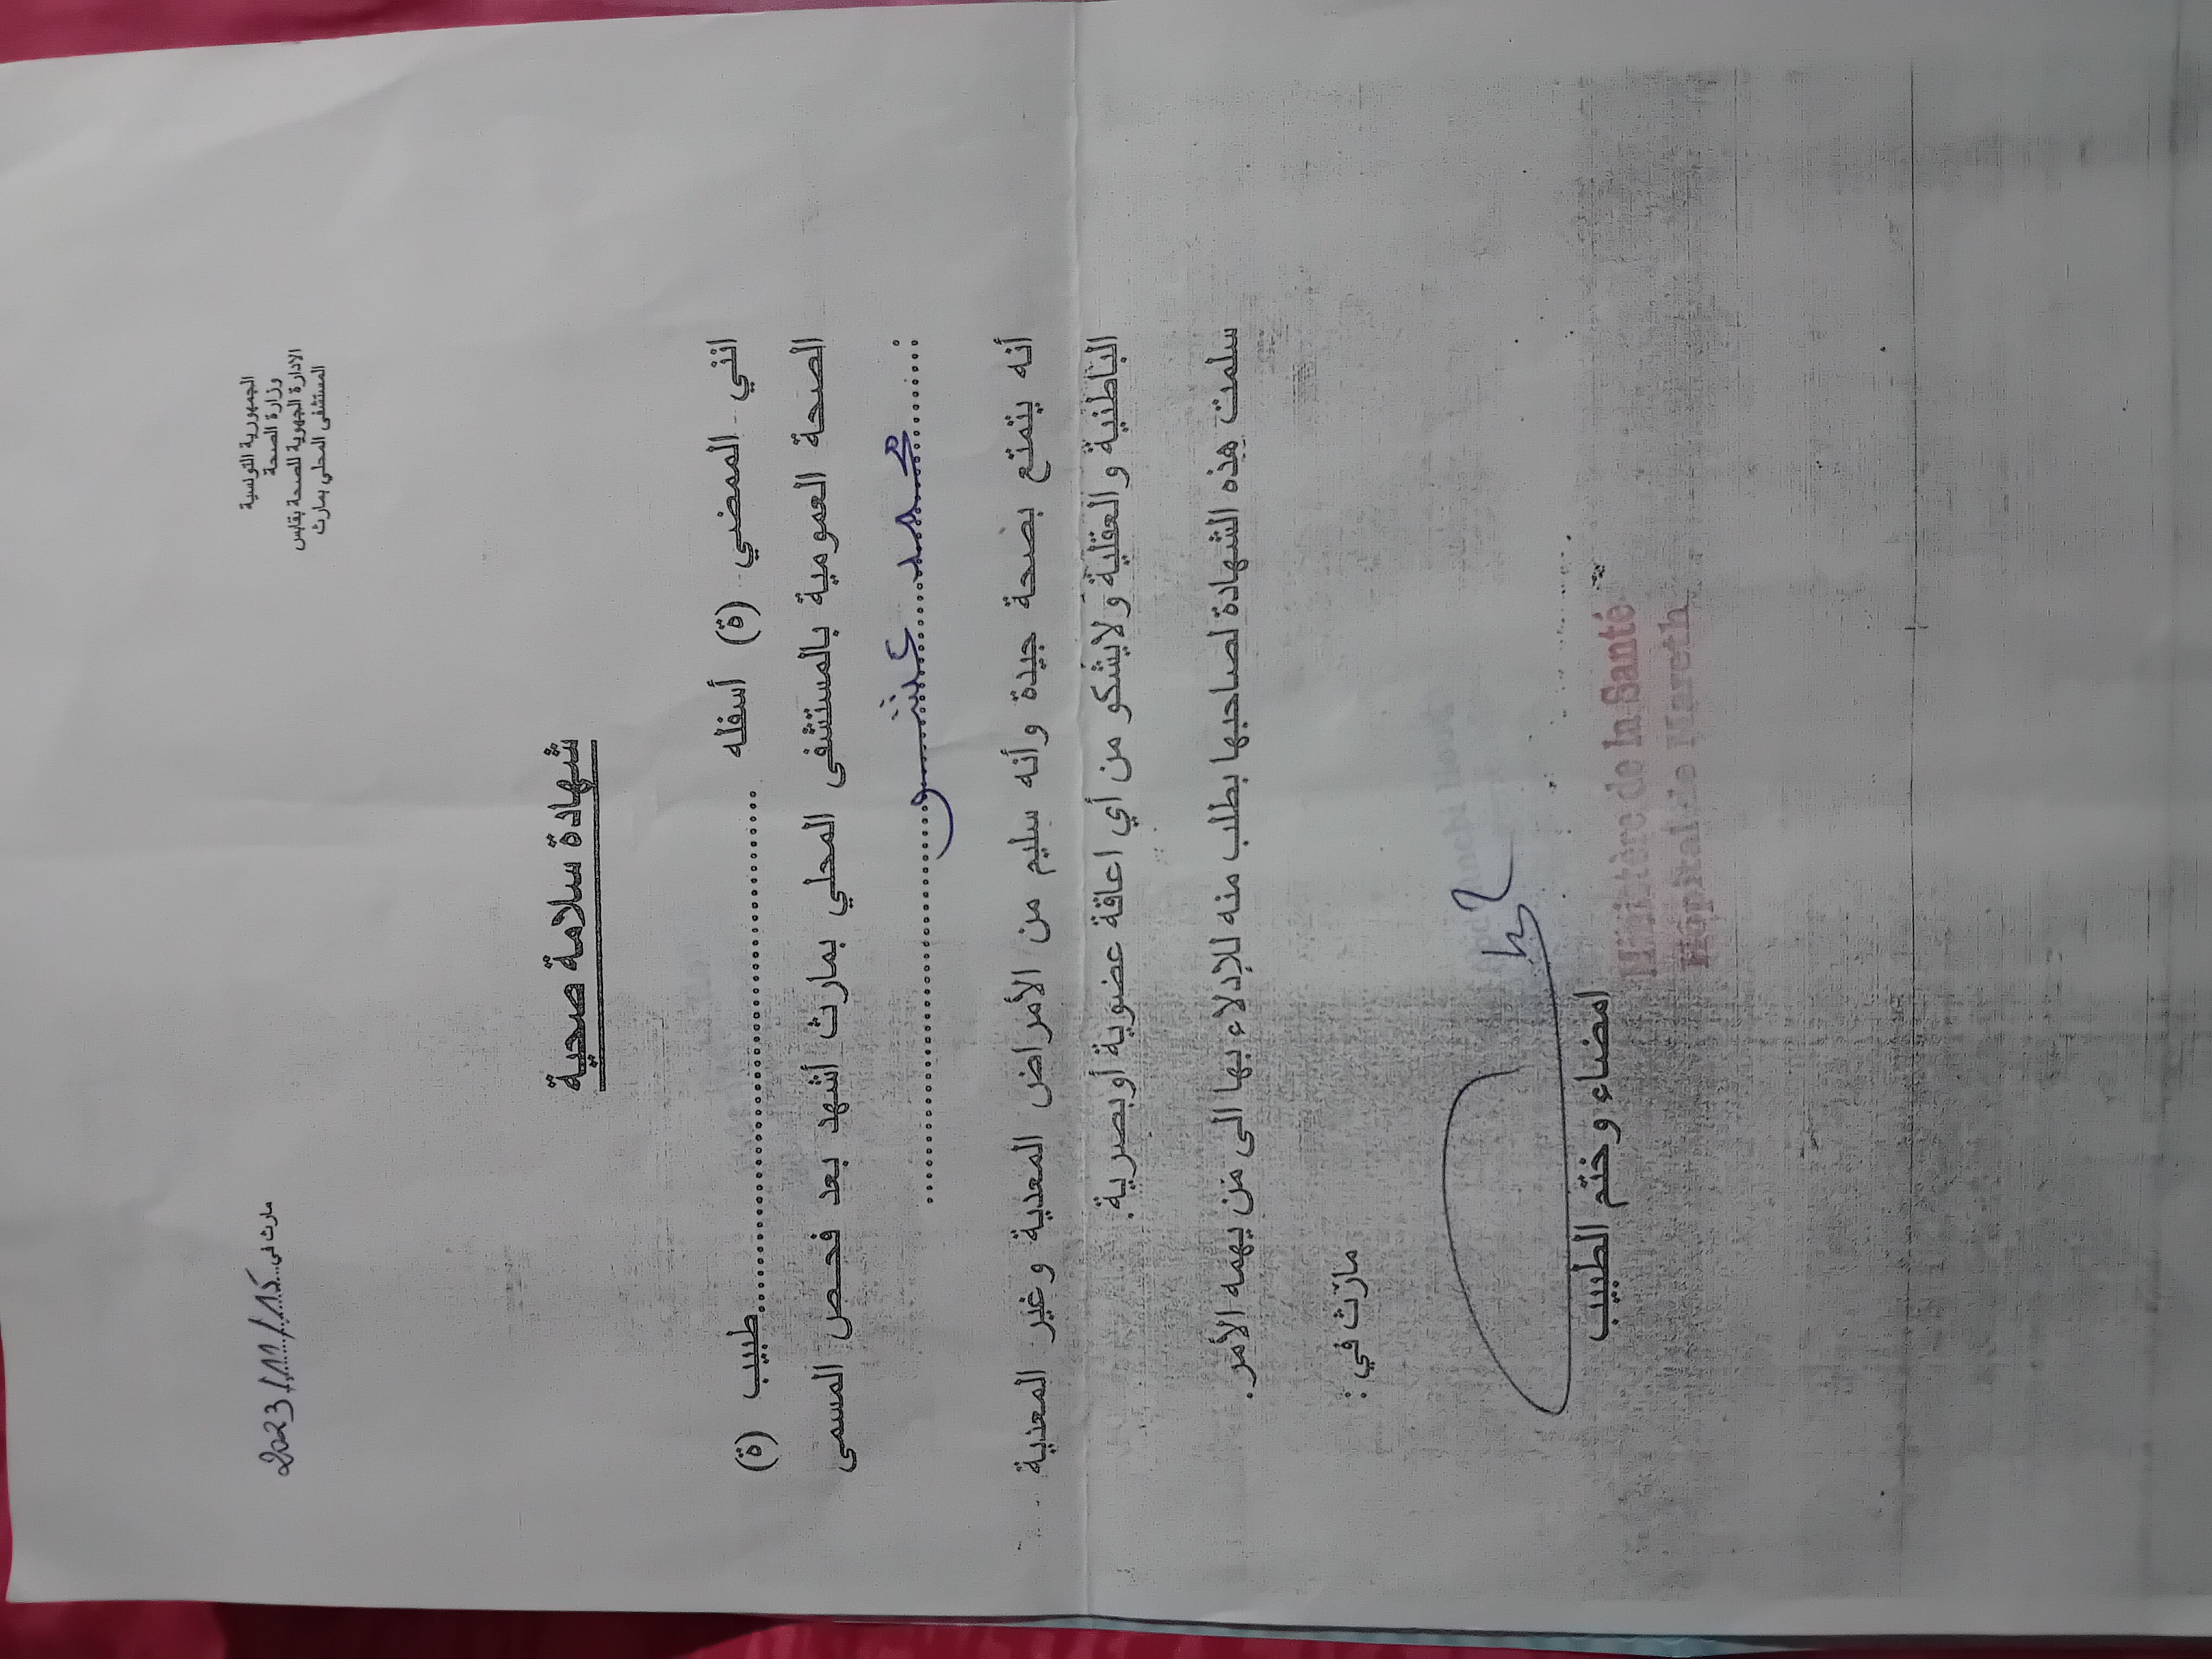 الجمهورية التونسية
وزارة الصحة
الادارة الجهوية للصحة بقابس
المستشفى المحلي بمارث
مارث في 2023/11/15
شهادة سلامة صحية
انني الممضي (ة) أسفله طبيب (ة)
الصحة العمومية بالمستشفى المحلي بمارث أشهد بعد فحص المسمى
محمد
أنه يتمتع بصحة جيدة وأنه سليم من الأمراض المعدية وغير المعدية
الباطنية والعقلية ولايشكو من أي اعاقة عضوية أوبصرية.
سلمت هذه الشهادة لصاحبها بطلب منه للإدلاء بها الى من يهمه الأمر.
مارث في :
امضاء وختم الطبيب
Ministère de la Santé
Hôpital de Mareth